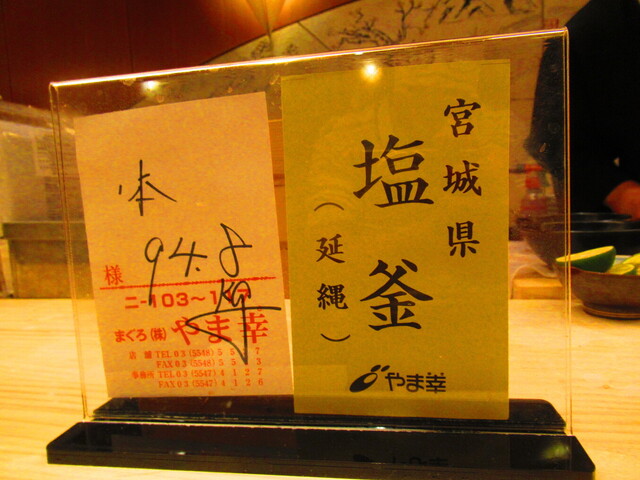 本
94.8
様
ニ-103~1
まぐろ(株)やま幸
店舗 TEL 03 (5548) 5 5 7
FAX 03 (5548) 5 5 3
事務所 TEL 03 (5547) 4 1 2 7
FAX 03 (5547) 4 1 2 6
宮城県
塩釜
(延縄)
やま幸